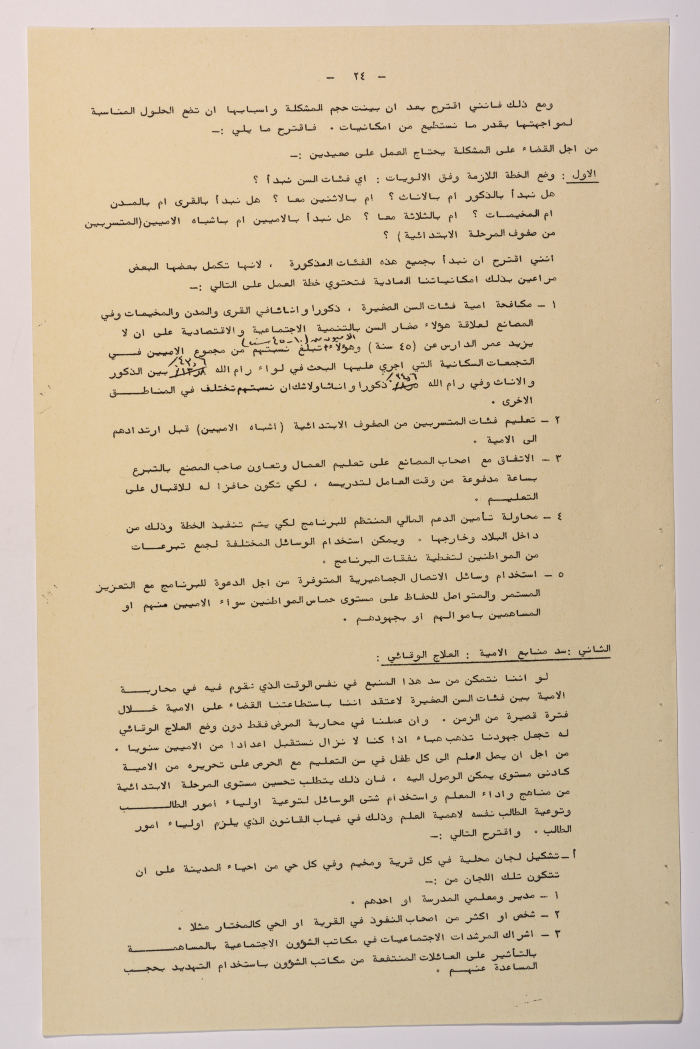 - ٢٤ -
ومع ذلك فانني اقترح بعد ان بينت حجم المشكلة واسبابها ان تضع الحلول المناسبة
لمواجهتها بقدر ما نستطيع من امكانيات . فاقترح ما يلي :-
من اجل القضاء على المشكلة يحتاج العمل على صعيدين :-
الاول : وضع الخطة اللازمة وفق الالويات : اي فئات السن نبدأ ؟
هل نبدأ بالذكور ام بالاناث ؟ ام بالاثنين معا ؟ هل نبدأ بالقرى ام بالمدن
ام المخيمات ؟ ام بالثلاثة معا ؟ هل نبدأ بالاميين ام باشباه الاميين (المتسربين
من صفوف المرحلة الابتدائية) ؟
انني اقترح ان نبدأ بجميع هذه الفئات المذكورة ، لانها تكمل بعضها البعض
مراعين بذلك امكانياتنا المادية فتحتوي خطة العمل على التالي :-
١ - مكافحة امية فئات السن الصغيرة ، ذكورا واناثا في القرى والمدن والمخيمات وفي
المصانع لعلاقة هؤلاء صغار السن بالتنمية الاجتماعية والاقتصادية على ان لا
يزيد عمر الدارس عن (٤٥ سنة) وهؤلاء الاميون من (١٠-٤٥ سنة) تبلغ نسبتهم من مجموع الاميين فــي
التجمعات السكانية التي اجري عليها البحث في لواء رام الله بين الذكور
والاناث وفي رام الله ذكورا واناثا ولا شك ان نسبتهم تختلف في المناطــق
الاخرى .
٢ - تعليم فئات المتسربين من الصفوف الابتدائية (اشباه الاميين) قبل ارتدادهم
الى الامية .
٣ - الاتفاق مع اصحاب المصانع على تعليم العمال وتعاون صاحب المصنع بالتبرع
بساعة مدفوعة من وقت العامل لتدريسه ، لكي تكون حافزا له للاقبال على
التعليــم .
٤ - محاولة تأمين الدعم المالي المنتظم للبرنامج لكي يتم تنفيذ الخطة وذلك من
داخل البلاد وخارجها . ويمكن استخدام الوسائل المختلفة لجمع تبرعــات
من المواطنين لتغطية نفقات البرنامج .
٥ - استخدام وسائل الاتصال الجماهيرية المتوفرة من اجل الدعوة للبرنامج مع التعزيز
المستمر والمتواصل للحفاظ على مستوى حماس المواطنين سواء الاميين منهم او
المساهمين باموالهم او بجهودهم .
الثاني : سد منابع الامية : العلاج الوقائي :
لو اننا نتمكن من سد هذا المنبع في نفس الوقت الذي نقوم فيه في محاربــة
الامية بين فئات السن الصغيرة لاعتقد اننا باستطاعتنا القضاء على الامية خــلال
فترة قصيرة من الزمن . وان عملنا في محاربة المرض فقط دون وضع العلاج الوقائي
له تجعل جهودنا تذهب هباء اذا كنا لا نزال نستقبل اعدادا من الاميين سنويا .
من اجل ان يصل العلم الى كل طفل في سن التعليم مع الحرص على تحريره من الامية
كادنى مستوى يمكن الوصول اليه ، فان ذلك يتطلب تحسين مستوى المرحلة الابتدائية
من مناهج واداء المعلم واستخدام شتى الوسائل لتوعية اولياء امور الطالــب
وتوعية الطالب نفسه لاهمية العلم وذلك في غياب القانون الذي يلزم اولياء امور
الطالب . واقترح التالي :-
أ - تشكيل لجان محلية في كل قرية ومخيم وفي كل حي من احياء المدينة على ان
تتكون تلك اللجان من :-
١ - مدير ومعلمي المدرسة او احدهم .
٢ - شخص او اكثر من اصحاب النفوذ في القرية او الحي كالمختار مثلا .
٣ - اشراك المرشدات الاجتماعيات في مكاتب الشؤون الاجتماعية بالمساهمــة
بالتأثير على العائلات المنتفعة من مكاتب الشؤون باستخدام التهديد بحجب
المساعدة عنهــم .